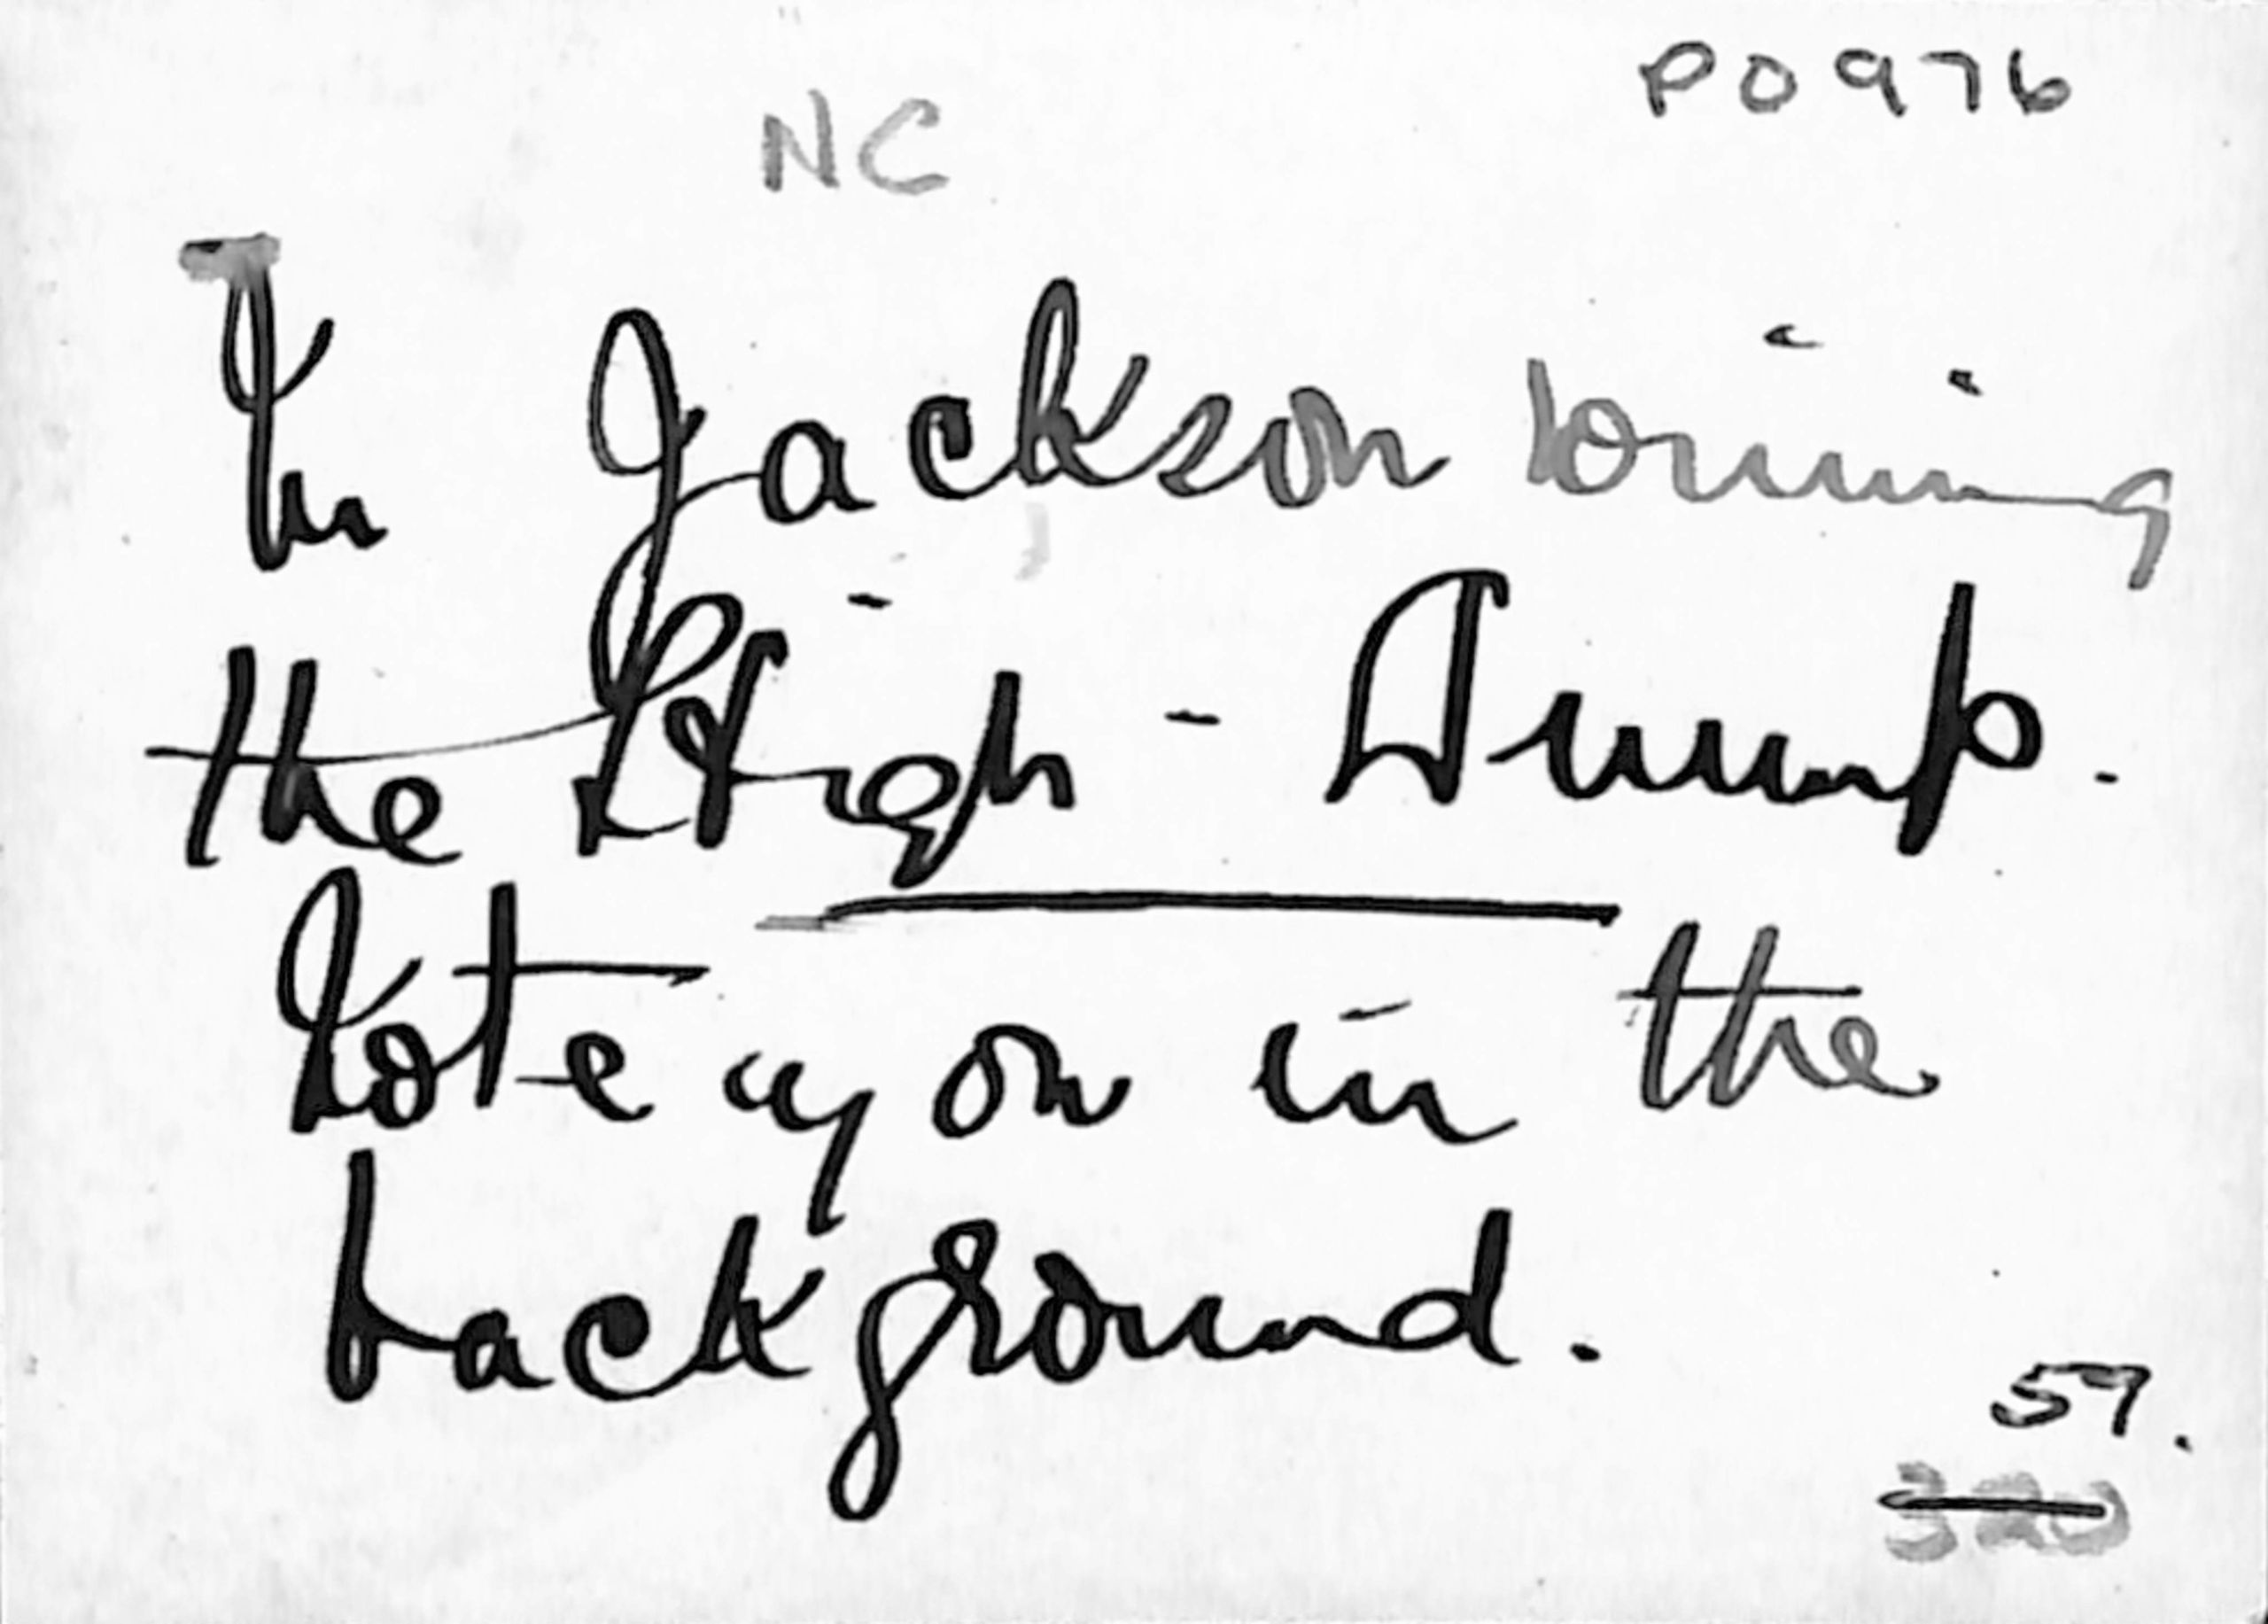 P0976
NC
In Jackson winning
the High - Jump.
in the
background.
57.
320